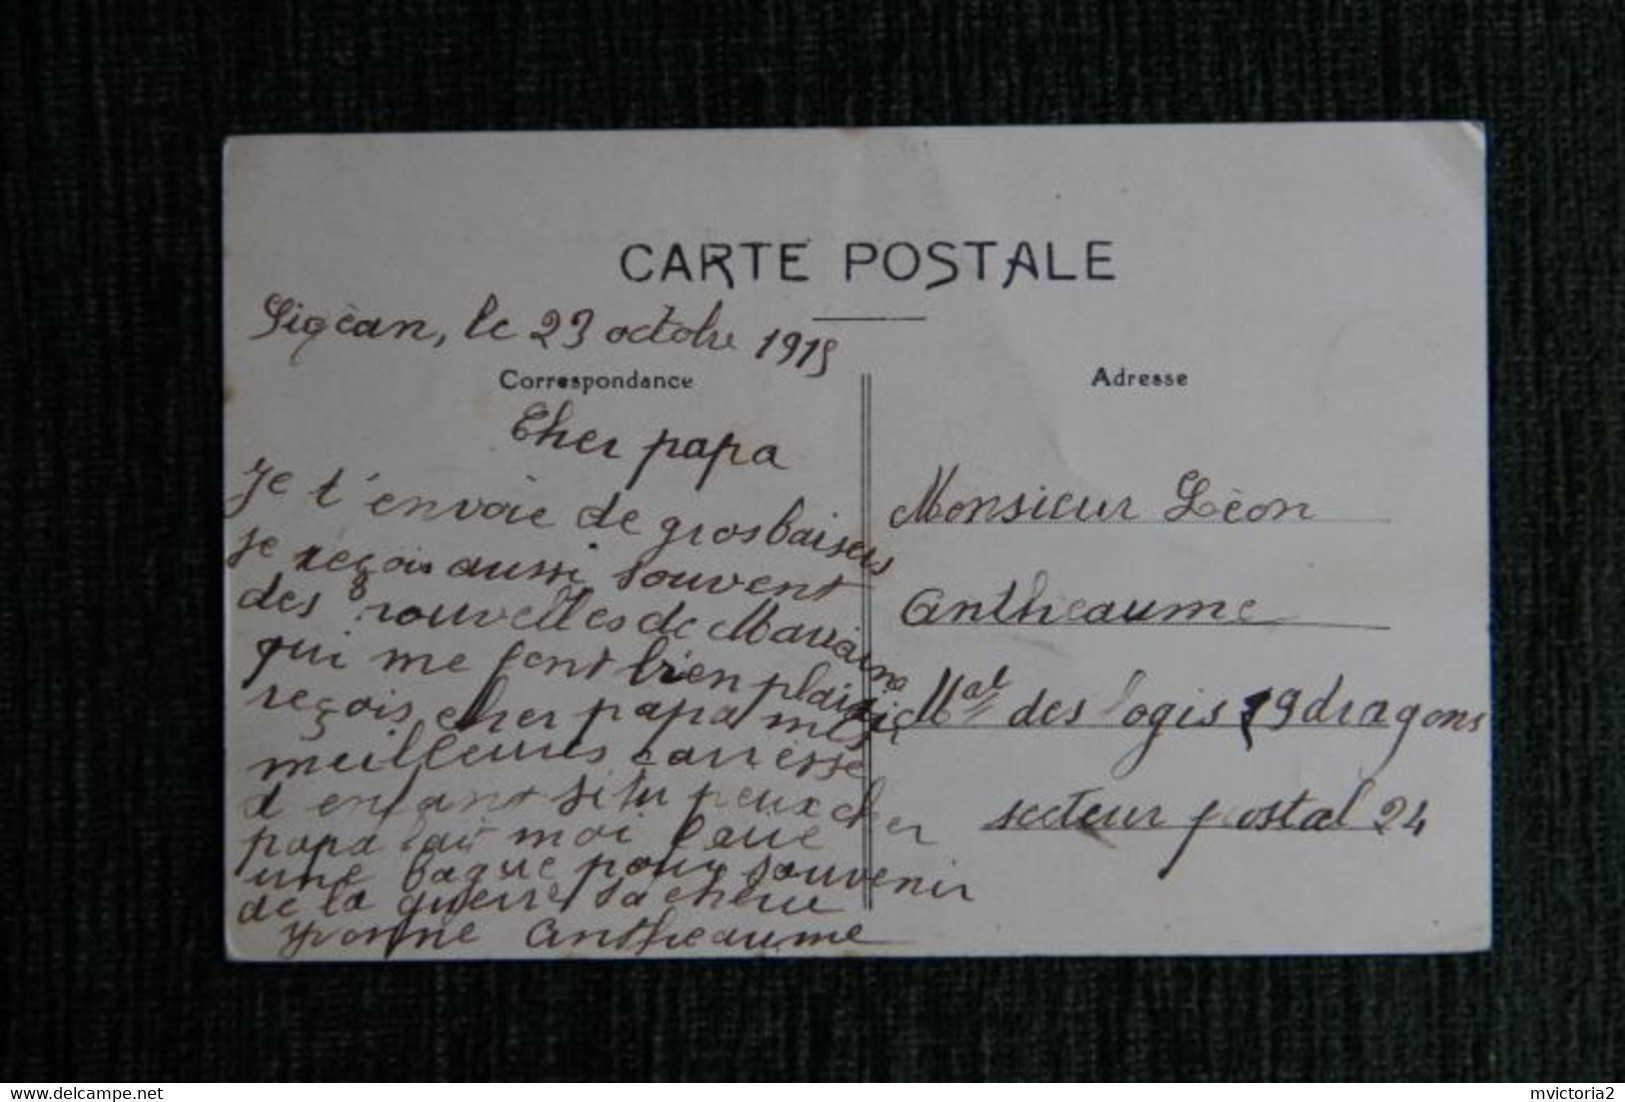 CARTE POSTALE
Sigéan, le 23 octobre 1915
Correspondance
Cher papa
Je t'envoie de gros baisers
je reçois aussi souvent
des nouvelles de
qui me font bien plaisir
reçois cher papa mes
meilleures carresse
d enfant si tu peux cher
papa fait moi faire
une bague pour souvenir
de la guerre ta cherie
Yvonne Antheaume
Adresse
Monsieur Léon
Antheaume
Mal des logis 19 dragons
secteur postal 24
www.delcampe.net
mvictoria2